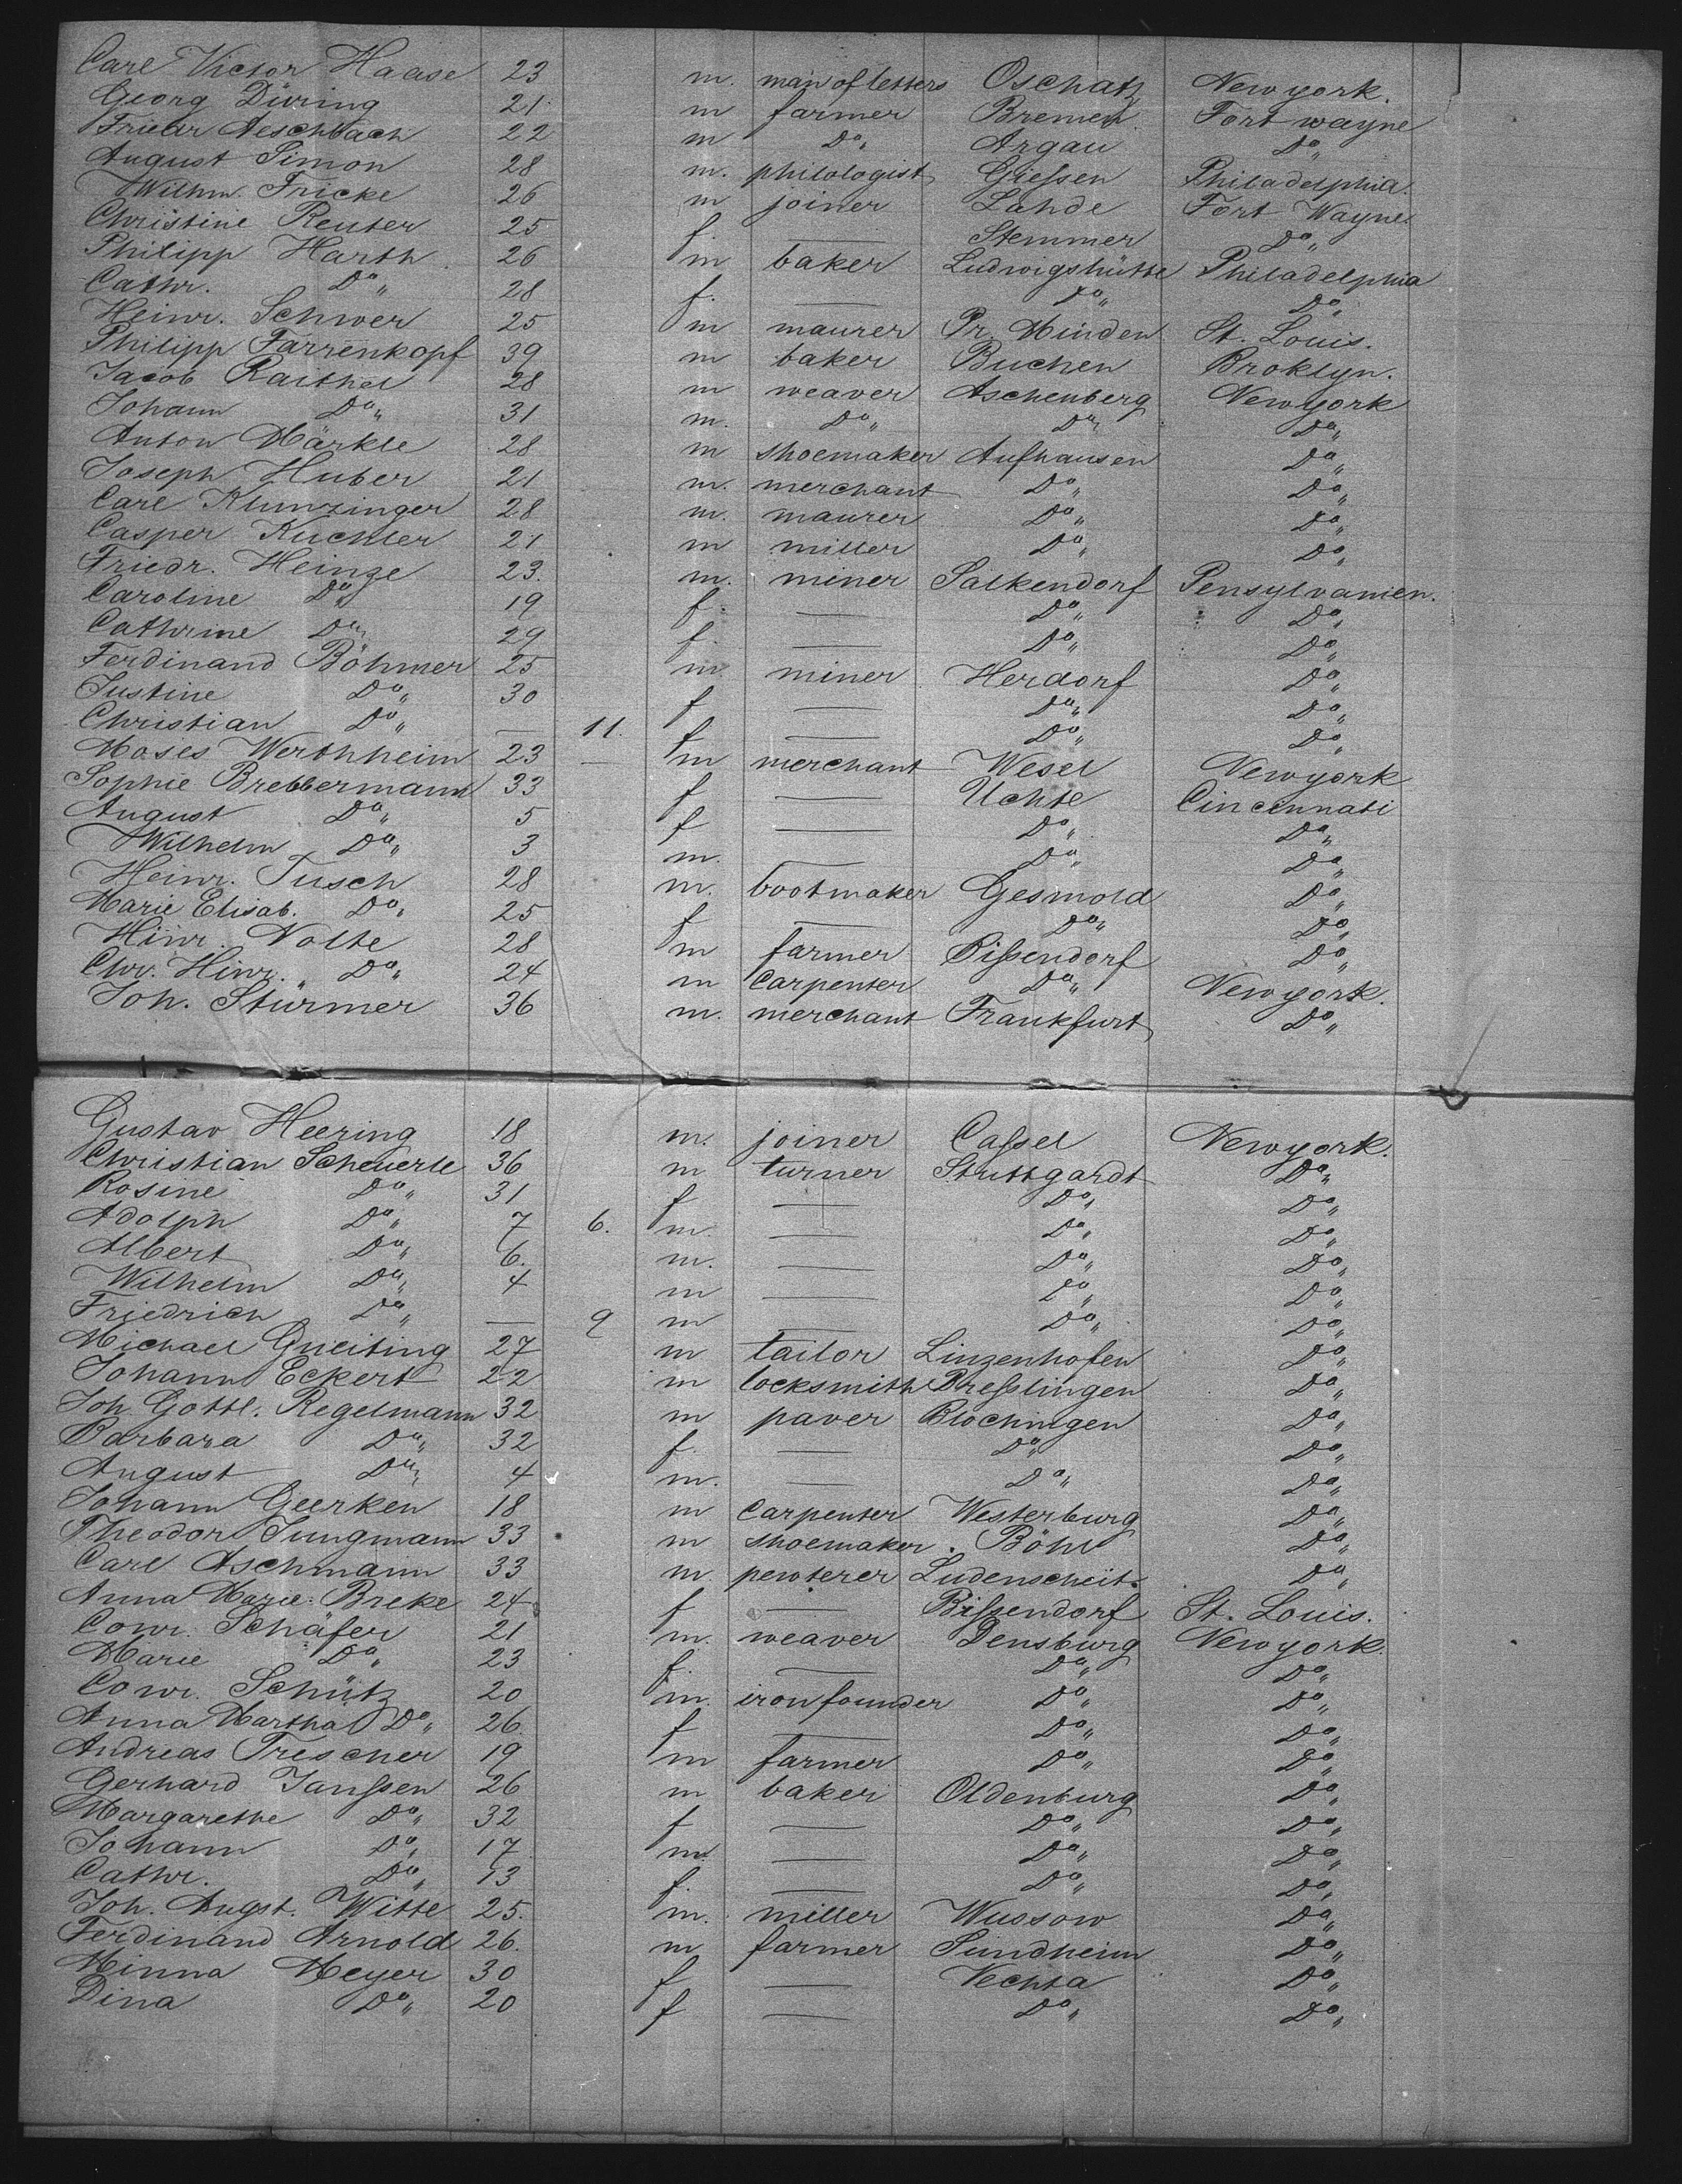 Carl Victor Haase 23 m. man of letters Oschatz New york.
Georg Düring 21 m farmer Bremen Fort wayne
Friedr Aeschbach 22 m Do„ Argau Do„
August Simon 28 m. philologist Gießen Philadelphia.
Wilhm. Fricke 26 m joiner Lahde Fort Wayne
Christine Reuter 25 f. — Stemmer Do„
Philipp Harth 26 m baker Ludwigshütte Philadelphia
Cathr. Do„ 28 f. — Do„ Do„
Heinr. Schwer 25 m maurer Pr. Minden St. Louis.
Philipp Farrenkopf 39 m baker Buchen Broklyn.
Jacob Raithel 28 m weaver Aschenberg New york
Johann Do„ 31 m. Do„ Do„ Do„
Anton Märkle 28 m shoemaker Aufhausen Do„
Joseph Huber 21 m. merchant Do„ Do„
Carl Klunzinger 28 m. maurer Do„ Do„
Casper Kuchler 21 m miller Do„ Do„
Friedr. Heinze 23. m. miner Salkendorf Pensylvanien.
Caroline Do„ 19 f. — Do„ Do„
Cathrine Do„ 29 f. — Do„ Do„
Ferdinand Böhmer 25 m. miner Herdorf Do„
Justine Do„ 30 f — Do„ Do„
Christian Do„ — 11. f — Do„ Do„
Moses Werthheim 23 — m merchant Wesel New york
Sophie Brebbermann 33 f — Uchte Cincinnati
August Do„ 5 f — Do„ Do„
Wilhelm Do„ 3 m. — Do„ Do„
Heinr. Tusch 28 m. bootmaker Gesmold Do„
Marie Elisab. Do„ 25 f — Do„ Do„
Hinr. Nolte 28 m farmer Bißendorf Do„
Chr. Hinr. Do„ 24 m Carpenter Do„ New york.
Joh. Stürmer 36 m. merchant Frankfurt Do„
Gustav Heering 18 m. joiner Caßel New york.
Christian Scheuerle 36 m turner Struttgardt Do„
Rosine Do„ 31 f — Do„ Do„
Adolph Do„ 7 6. m. — Do„ Do„
Albert Do„ 6. m. — Do„ Do„
Wilhelm Do„ 4 m — Do„ Do„
Friedrich Do„ — 9 m — Do„ Do„
Michael Gneiting 27 m tailor Linzenhofen Do„
Johann Eckert 22 m locksmith Dreßlingen Do„
Joh. Gottl. Regelmann 32 m paver Blochingen Do„
Barbara Do„ 32 f. — Do„ Do„
August Do„ 4 m. — Do„ Do„
Johann Geerken 18 m Carpenter Westerburg Do„
Theodor Jungmann 33 m shoemaker Böhl Do„
Carl Aschmann 33 m. pewterer Ludenscheit. Do„
Anna Marie Breke 24 f — Bißendorf St. Louis.
Conr. Schäfer 21 m. weaver Densburg New york.
Marie Do„ 23 f. — Do„ Do„
Conr. Schütz 20 m. iron founder Do„ Do„
Anna Martha Do„ 26. f — Do„ Do„
Andreas Trescher 19 m farmer Do„ Do„
Gerhard Janßen 26 m baker Oldenburg Do„
Margarethe Do„ 32 f — Do„ Do„
Johann Do„ 17 m. — Do„ Do„
Cathr. Do„ 13 f. — Do„ Do„
Joh. Augst. Witte 25. m. miller Wussow Do„
Ferdinand Arnold 26. m farmer Sundheim Do„
Minna Meyer 30 f — Vechta Do„
Dina Do„ 20 f — Do„ Do„